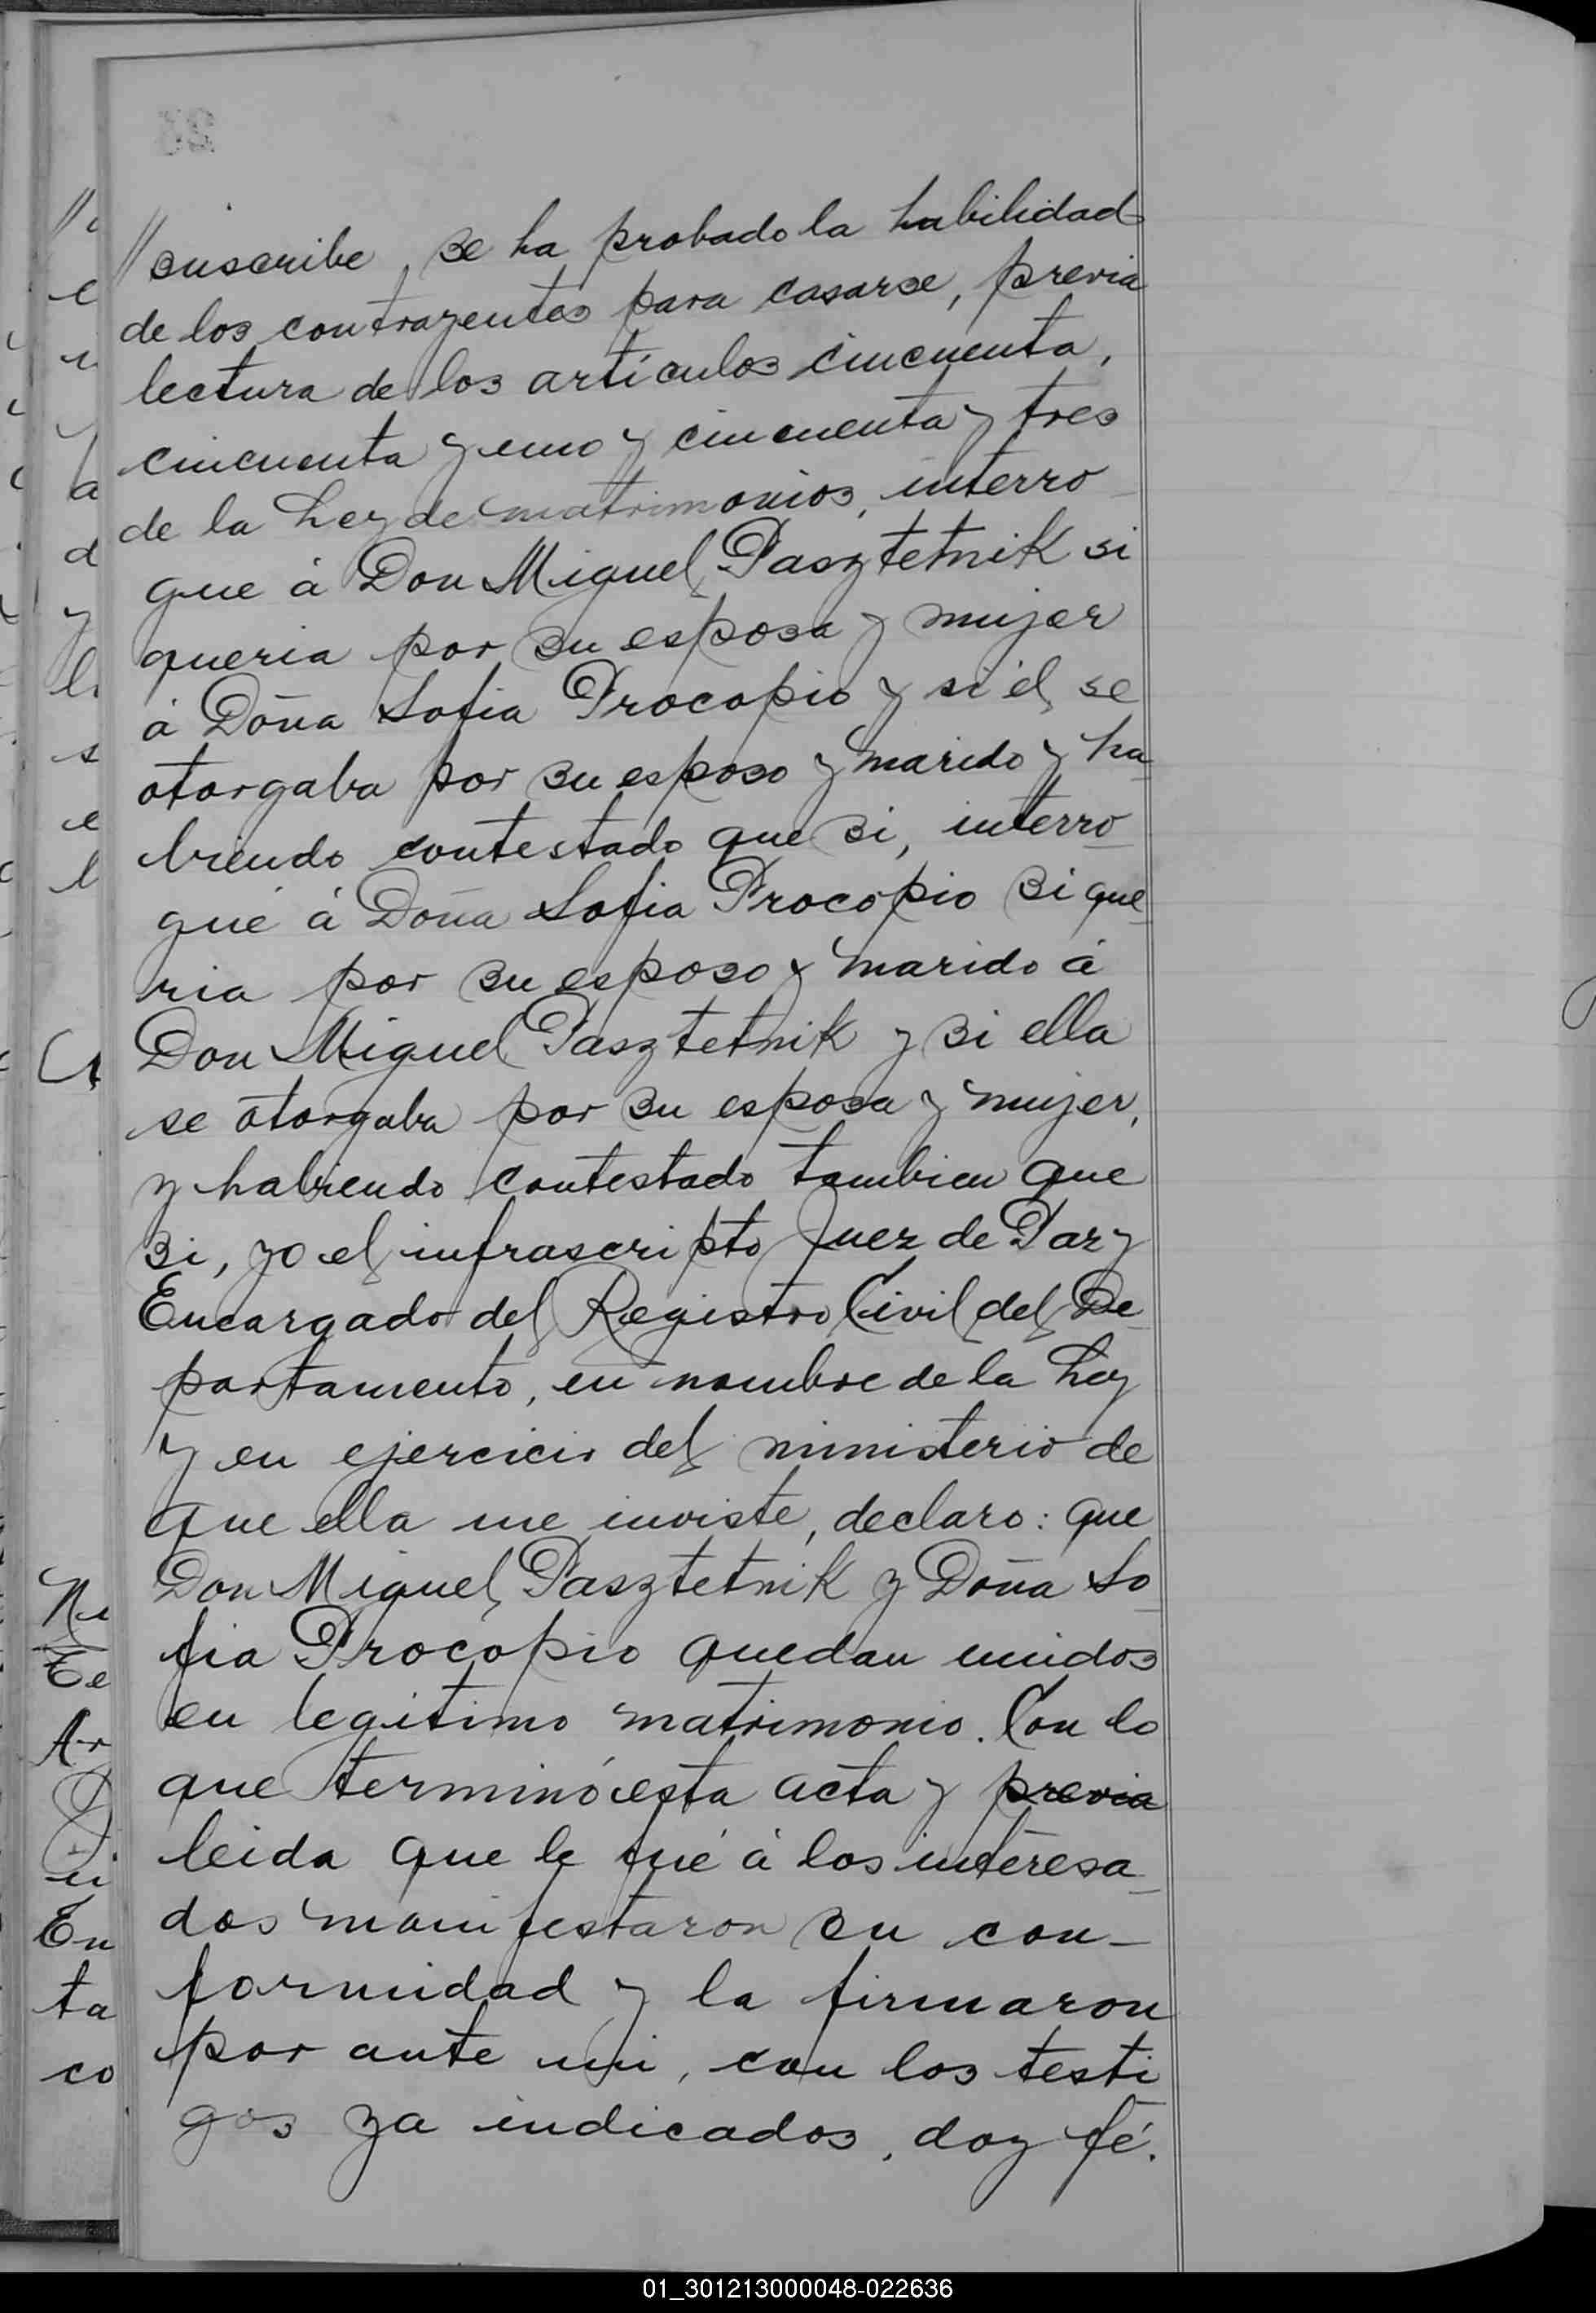 // suscribe, se ha probado la habilidad
de los contrayentes para casarse, previa
lectura de los artículos cincuenta,
cincuenta y uno y cincuenta y tres
de la Ley de matrimonios, interro
gue á Don Miguel Pasztetnik si
queria por su esposa y mujer
á Doña Sofia Procopio y si él se
otorgaba por su esposo y marido y ha
biendo contestado que si, interro
gué á Doña Sofia Procopio si que
ria por su esposo y marido á
Don Miguel Pasztetnik y si ella
se otorgaba por su esposa y mujer,
y habiendo contestado tambien que
si, yo el infrascripto Juez de Paz y
Encargado del Registro Civil del De
partamento, en nombre de la Ley
y en ejercicio del ministerio de
que ella me inviste, declaro: que
Don Miguel Pasztetnik y Doña So
fia Procopio quedan unidos
en legitimo matrimonio. Con lo
que terminó esta acta y previa
leida que le fué á los interesa
dos manifestaron su con-
formidad y la firmaron
por ante mi, con los testi
gos ya indicados, doy fé.
01_301213000048-022636